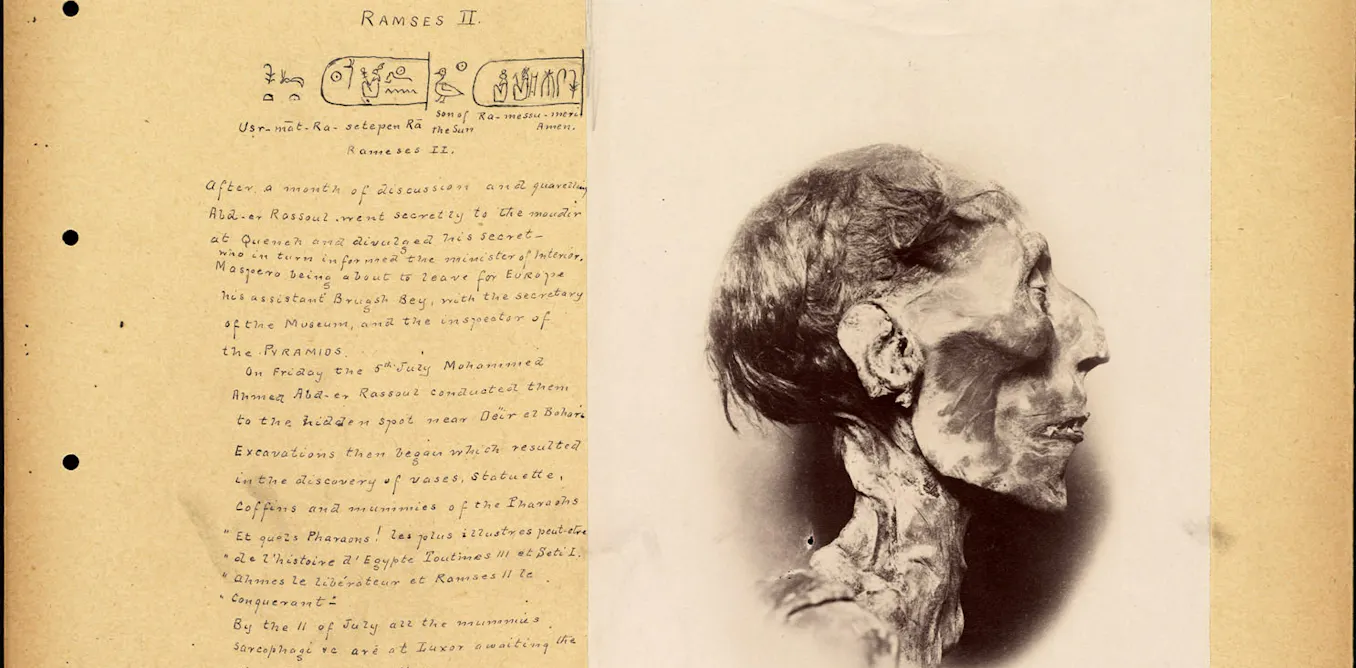 RAMSES II.
Usr-māt-Ra- setepen Rā son of the Sun Ra-messu-meri Amen.
Rameses II.
After a month of discussion and quarelling
Abd-er Rassoul went secretly to the moudir
at Queneh and divulged his secret-
who in turn informed the minister of Interior.
Maspero being about to leave for EUROPE
his assistant Brugsh Bey, with the secretary
of the Museum, and the inspector of
the PYRAMIDS.
On Friday the 5th July Mohammed
Ahmed Abd-er Rassoul conducted them
to the hidden spot near Deïr el Bohari
Excavations then began which resulted
in the discovery of vases, statuette,
Coffins and mummies of the Pharaohs
"Et quels Pharaons! les plus illustres peut-etre
"de l'histoire d'Egypte Toutmes III et Seti I.
"Ahmes le libérateur et Ramses II le
"Conquerant"
By the 11 of July all the mummies
Sarcophagi &c are at Luxor awaiting the